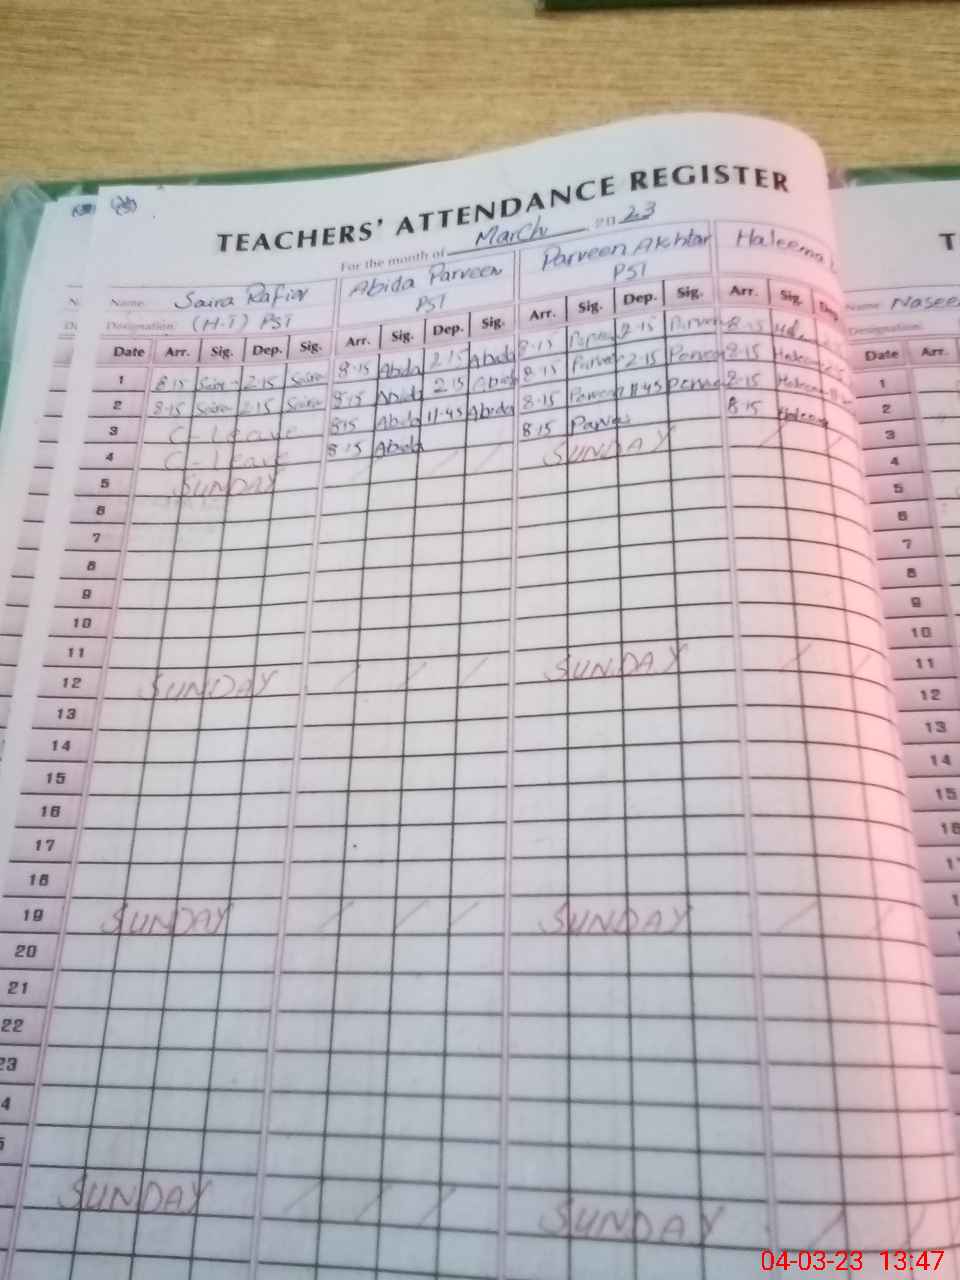 TEACHERS' ATTENDANCE REGISTER
For the month of March 2023
Name: Saira Rafiq Abida Parveen Parveen Akhtar Haleema
Designation: (H-T) PST PST PST
Date Arr. Sig. Dep. Sig. Arr. Sig. Dep. Sig. Arr. Sig. Dep. Sig. Arr. Sig. Dep.
1 8-15 Saira 2-15 Saira 8-15 Abida 2-15 Abida 8-15 Parveen 2-15 Parveen 8-15
2 8-15 Saira 2-15 Saira 8-15 Abida 2-15 Abida 8-15 Parveen 2-15 Parveen 8-15 Haleema
3 C-leave 8-15 Abida 11-45 Abida 8-15 Parveen 11-45 Parveen 8-15 Haleema
4 C-leave 8-15 Abida 8-15 8-15 Haleema
5 SUNDAY SUNDAY
6
7
8
9
10
11
12 SUNDAY SUNDAY
13
14
15
16
17
18
19 SUNDAY SUNDAY
20
21
22
23
4
5
SUNDAY SUNDAY
T
Name: Nasee
Designation:
Date Arr.
1
2
3
4
5
6
7
8
9
10
11
12
13
14
15
16
04-03-23 13:47